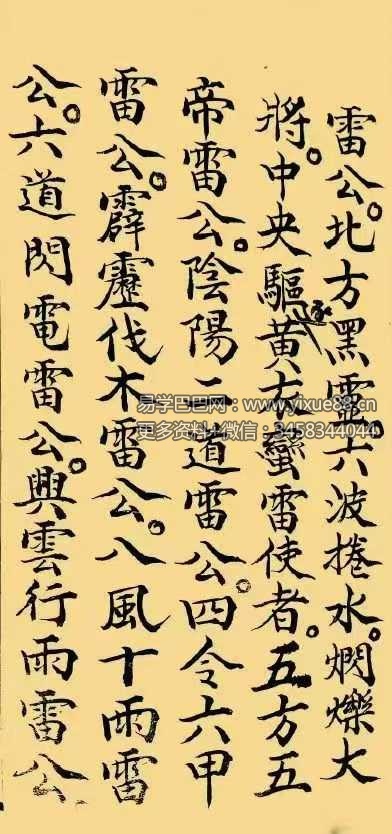 雷公。北方黑靈。六波捲水。燜爍大
將。中央驅黃蠻雷使者。五方五
帝雷公。陰陽二道雷公。四令六甲
雷公。霹靂伐木雷公。八風十雨雷
公。六道閃電雷公。興雲行雨雷公
易学巴巴网：www.yixue88.cn
更多资料+微信：3458344044